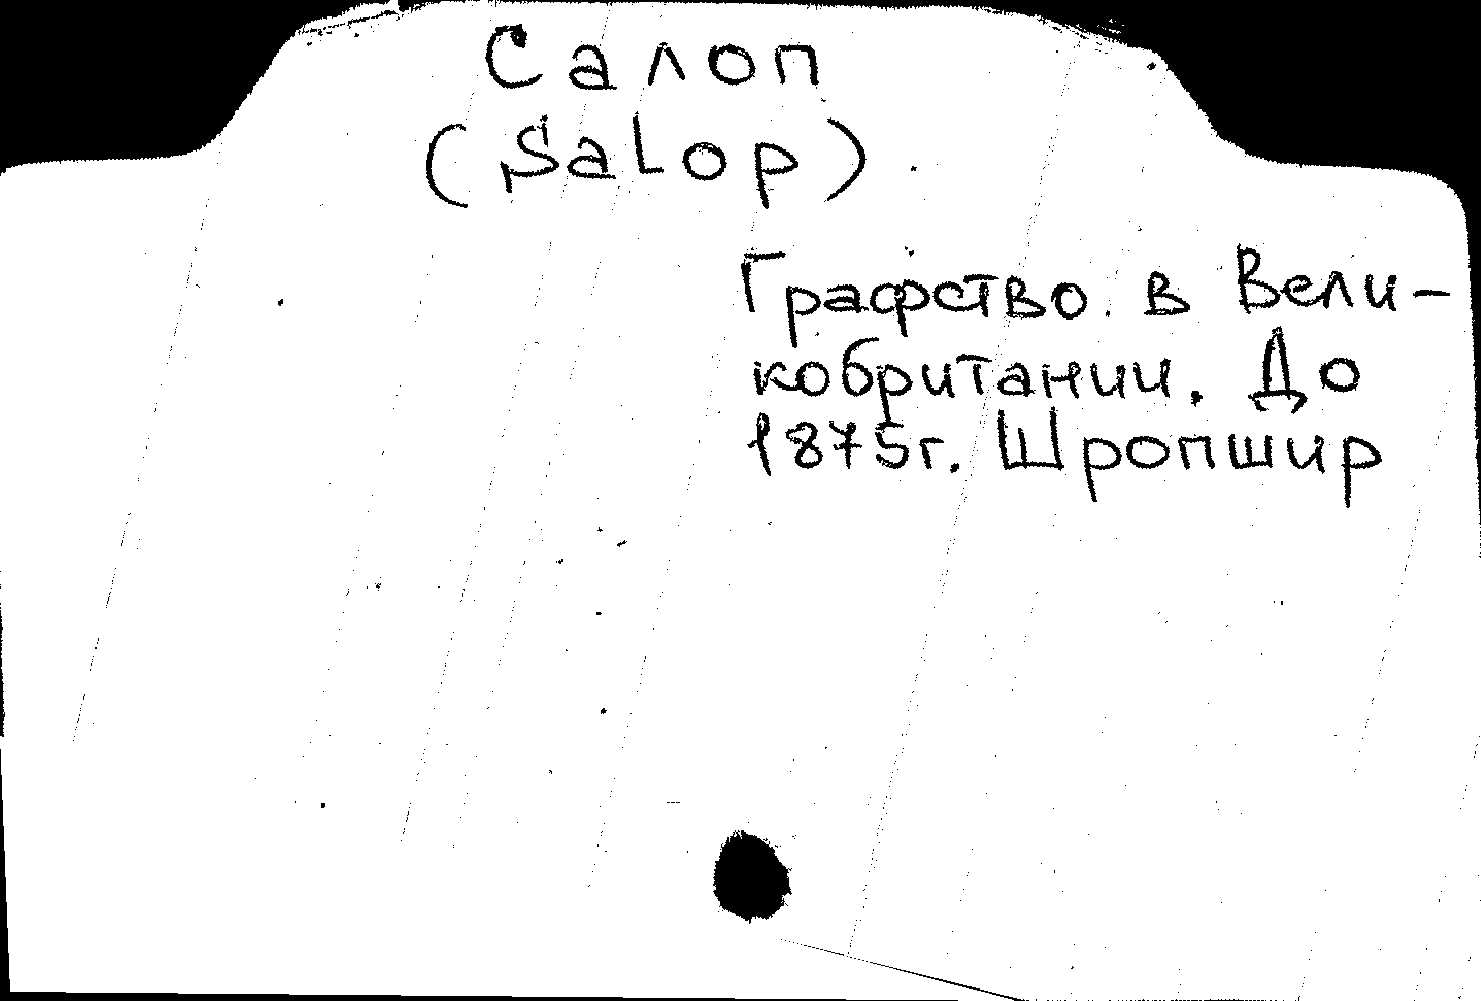 Салоп
(Salop)
Графство в Вели-
кобритании. До
1875г. Шропшир